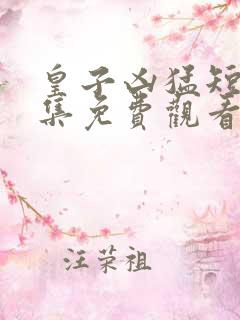 皇子凶猛短
集免費觀看
汪荣祖